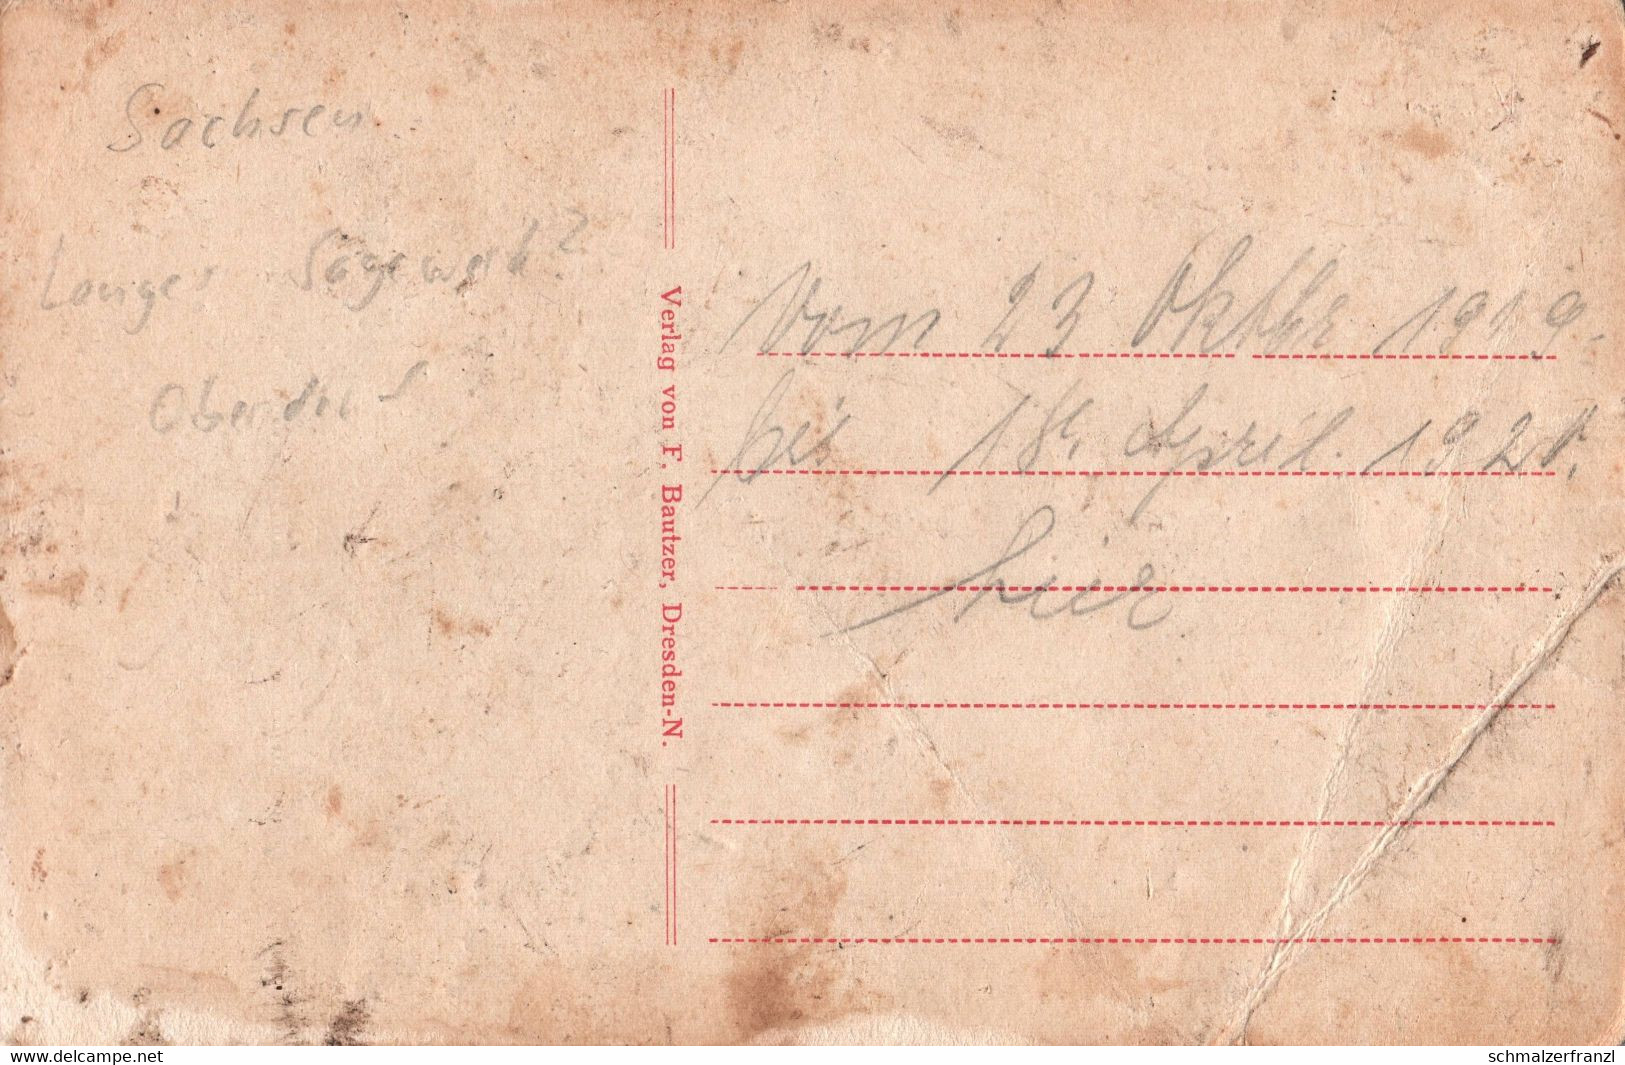 Sachsen
Langes Sägewerk?
Oberdorf
Verlag von F. Bautzer, Dresden-N.
Vom 23 Oktbr 1919.
bis 18. April. 1920.
hier
www.delcampe.net
schmalzerfranzl